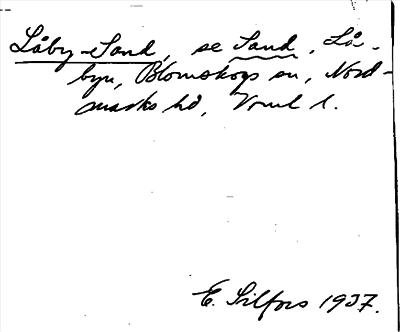 Låby-Sand, se Sand, Lå-
byn, Blomskogs sn, Nord-
marks hd, Vrml l.
E. Silfors 1937.